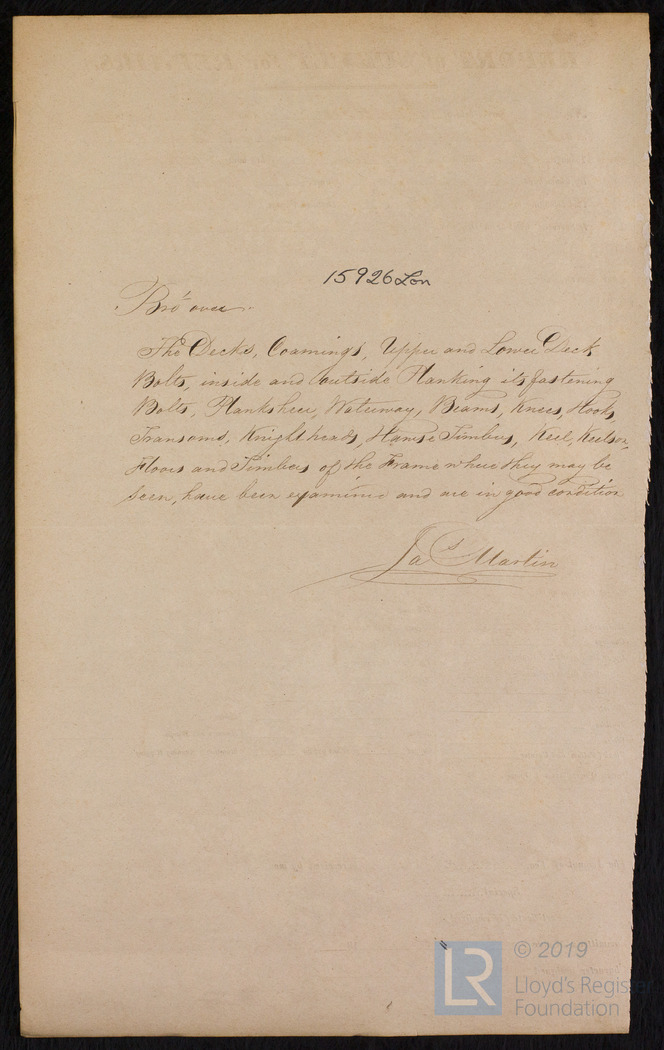 15926 Lon
Bro't over
The Decks, Coamings, Upper and Lower Deck
Bolts, inside and outside Planking its fastening
Bolts, Planksheer, Waterway, Beams, Knees, Hooks,
Transoms, Knightheads, Hawse Timbers, Keel, Keelson,
Floors and Timbers of the Frame where they may be
seen, have been examined and are in good condition
Jas Martin
LR
© 2019
Lloyd's Register
Foundation